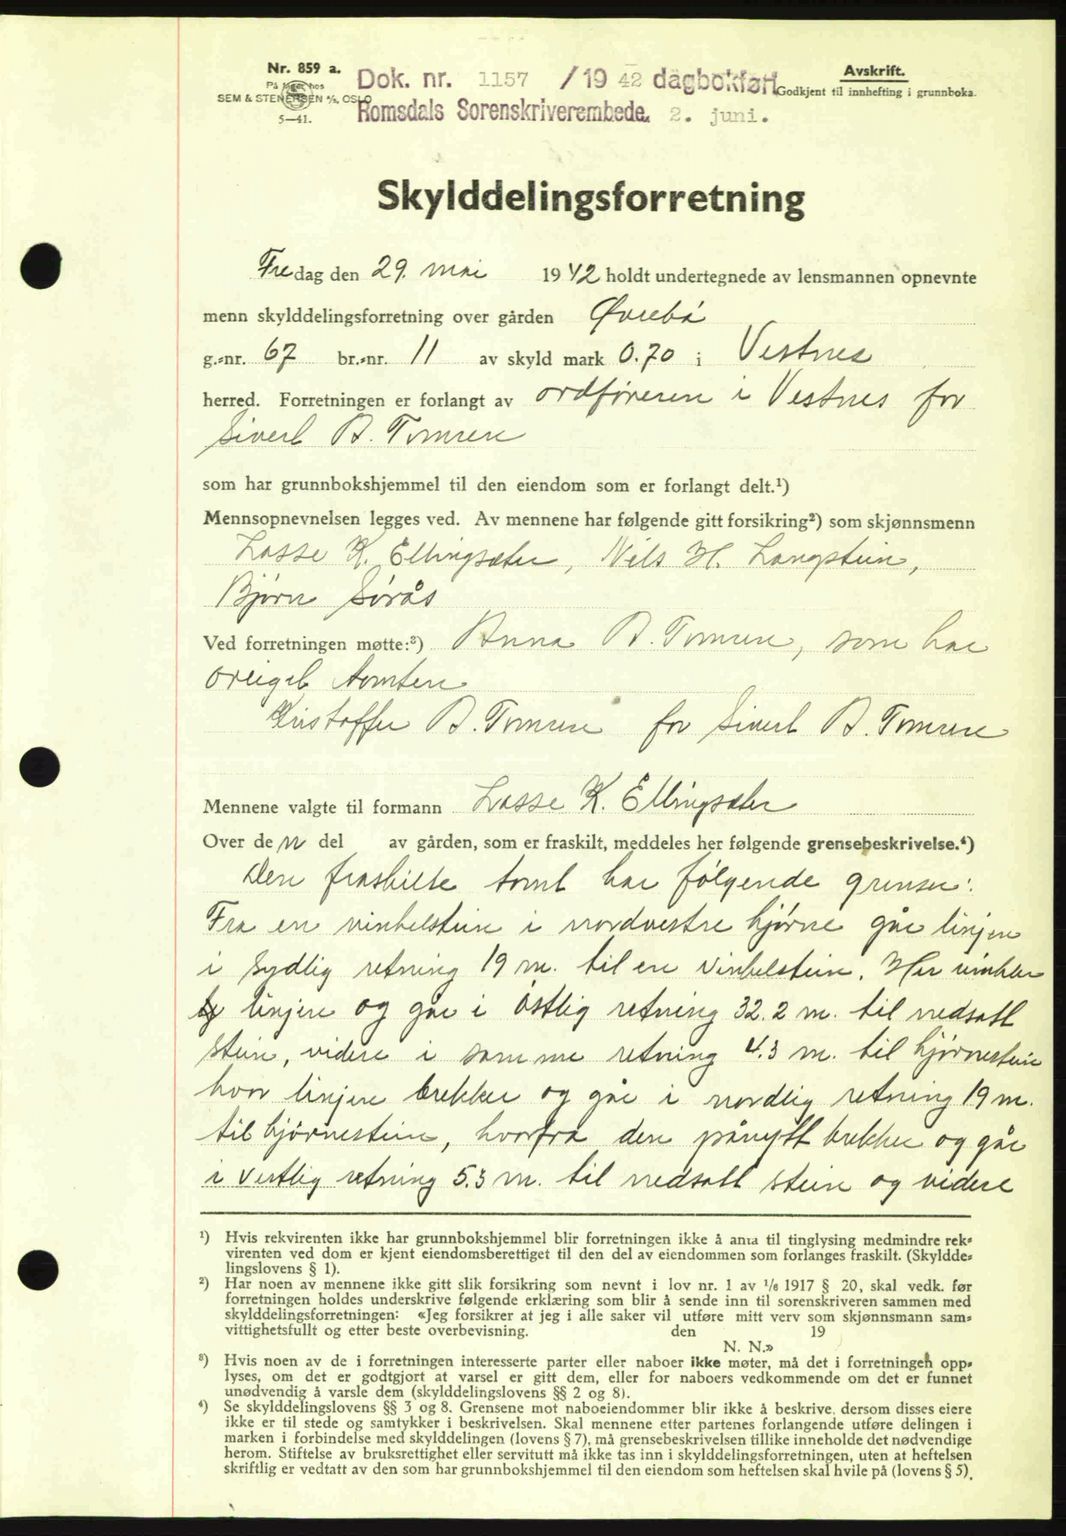 Nr. 859 a.
På lager hos
SEM & STENERSEN A/S, OSLO
5—41.
Dok. nr. 1157 / 19 42 dagbokført
Romsdals Sorenskriverembede. 2. juni.
Avskrift.
Godkjent til innhefting i grunnboka.
Skylddelingsforretning
Fredag den 29. mai 1942 holdt undertegnede av lensmannen opnevnte
menn skylddelingsforretning over gården Øvrebö
g.-nr. 67 br.-nr. 11 av skyld mark 0.70 i Vestnes
herred. Forretningen er forlangt av ordføreren i Vestnes for
Sivert B. Tomren
som har grunnbokshjemmel til den eiendom som er forlangt delt.¹)
Mennsopnevnelsen legges ved. Av mennene har følgende gitt forsikring²) som skjønnsmenn
Lasse K. Ellingsæter, Nils H. Langstein,
Bjørn Sørås
Ved forretningen møtte:³) Anna B. Tomren, som har
oreigel tomten
Kristoffer B. Tomren for Sivert B. Tomren
Mennene valgte til formann Lasse K. Ellingsæter
Over den del av gården, som er fraskilt, meddeles her følgende grensebeskrivelse.⁴)
Den fraskilte tomt har følgende grenser:
Fra en vinkelstein i nordvestre hjørne går linjen
i sydlig retning 19 m. til en vinkelstein. Her vinkler
linjen og går i östlig retning 32.2 m. til nedsatt
stein, videre i samme retning 4.3 m. til hjørnestein
hvor linjen brekker og går i nordlig retning 19 m.
til hjørnestein, hvorfra den pånytt brekker og går
i vestlig retning 5.3 m. til nedsatt stein og videre
¹) Hvis rekvirenten ikke har grunnbokshjemmel blir forretningen ikke å anta til tinglysing medmindre rek-
virenten ved dom er kjent eiendomsberettiget til den del av eiendommen som forlanges fraskilt. (Skyldde-
lingslovens § 1).
²) Har noen av mennene ikke gitt slik forsikring som nevnt i lov nr. 1 av ¹/₆ 1917 § 20, skal vedk. før
forretningen holdes underskrive følgende erklæring som blir å sende inn til sorenskriveren sammen med
skylddelingsforretningen: «Jeg forsikrer at jeg i alle saker vil utføre mitt verv som skjønnsmann sam-
vittighetsfullt og etter beste overbevisning. den 19
N. N.»
³) Hvis noen av de i forretningen interesserte parter eller naboer ikke møter, må det i forretningen opp-
lyses, om det er godtgjort at varsel er gitt dem, eller for naboers vedkommende om det er funnet
unødvendig å varsle dem (skylddelingslovens §§ 2 og 8).
⁴) Se skylddelingslovens §§ 3 og 8. Grensene mot naboeiendommer blir ikke å beskrive, dersom disses eiere
ikke er til stede og samtykker i beskrivelsen. Skal mennene etter partenes forlangende utføre delingen i
marken i forbindelse med skylddelingen (lovens § 7), må grensebeskrivelsen tillike inneholde det nødvendige
herom. Stiftelse av bruksrettighet eller servitutt må ikke tas inn i skylddelingsforretningen, uten at heftelsen
skriftlig er vedtatt av den som har grunnbokshjemmel til den eiendom som heftelsen skal hvile på (lovens § 5).